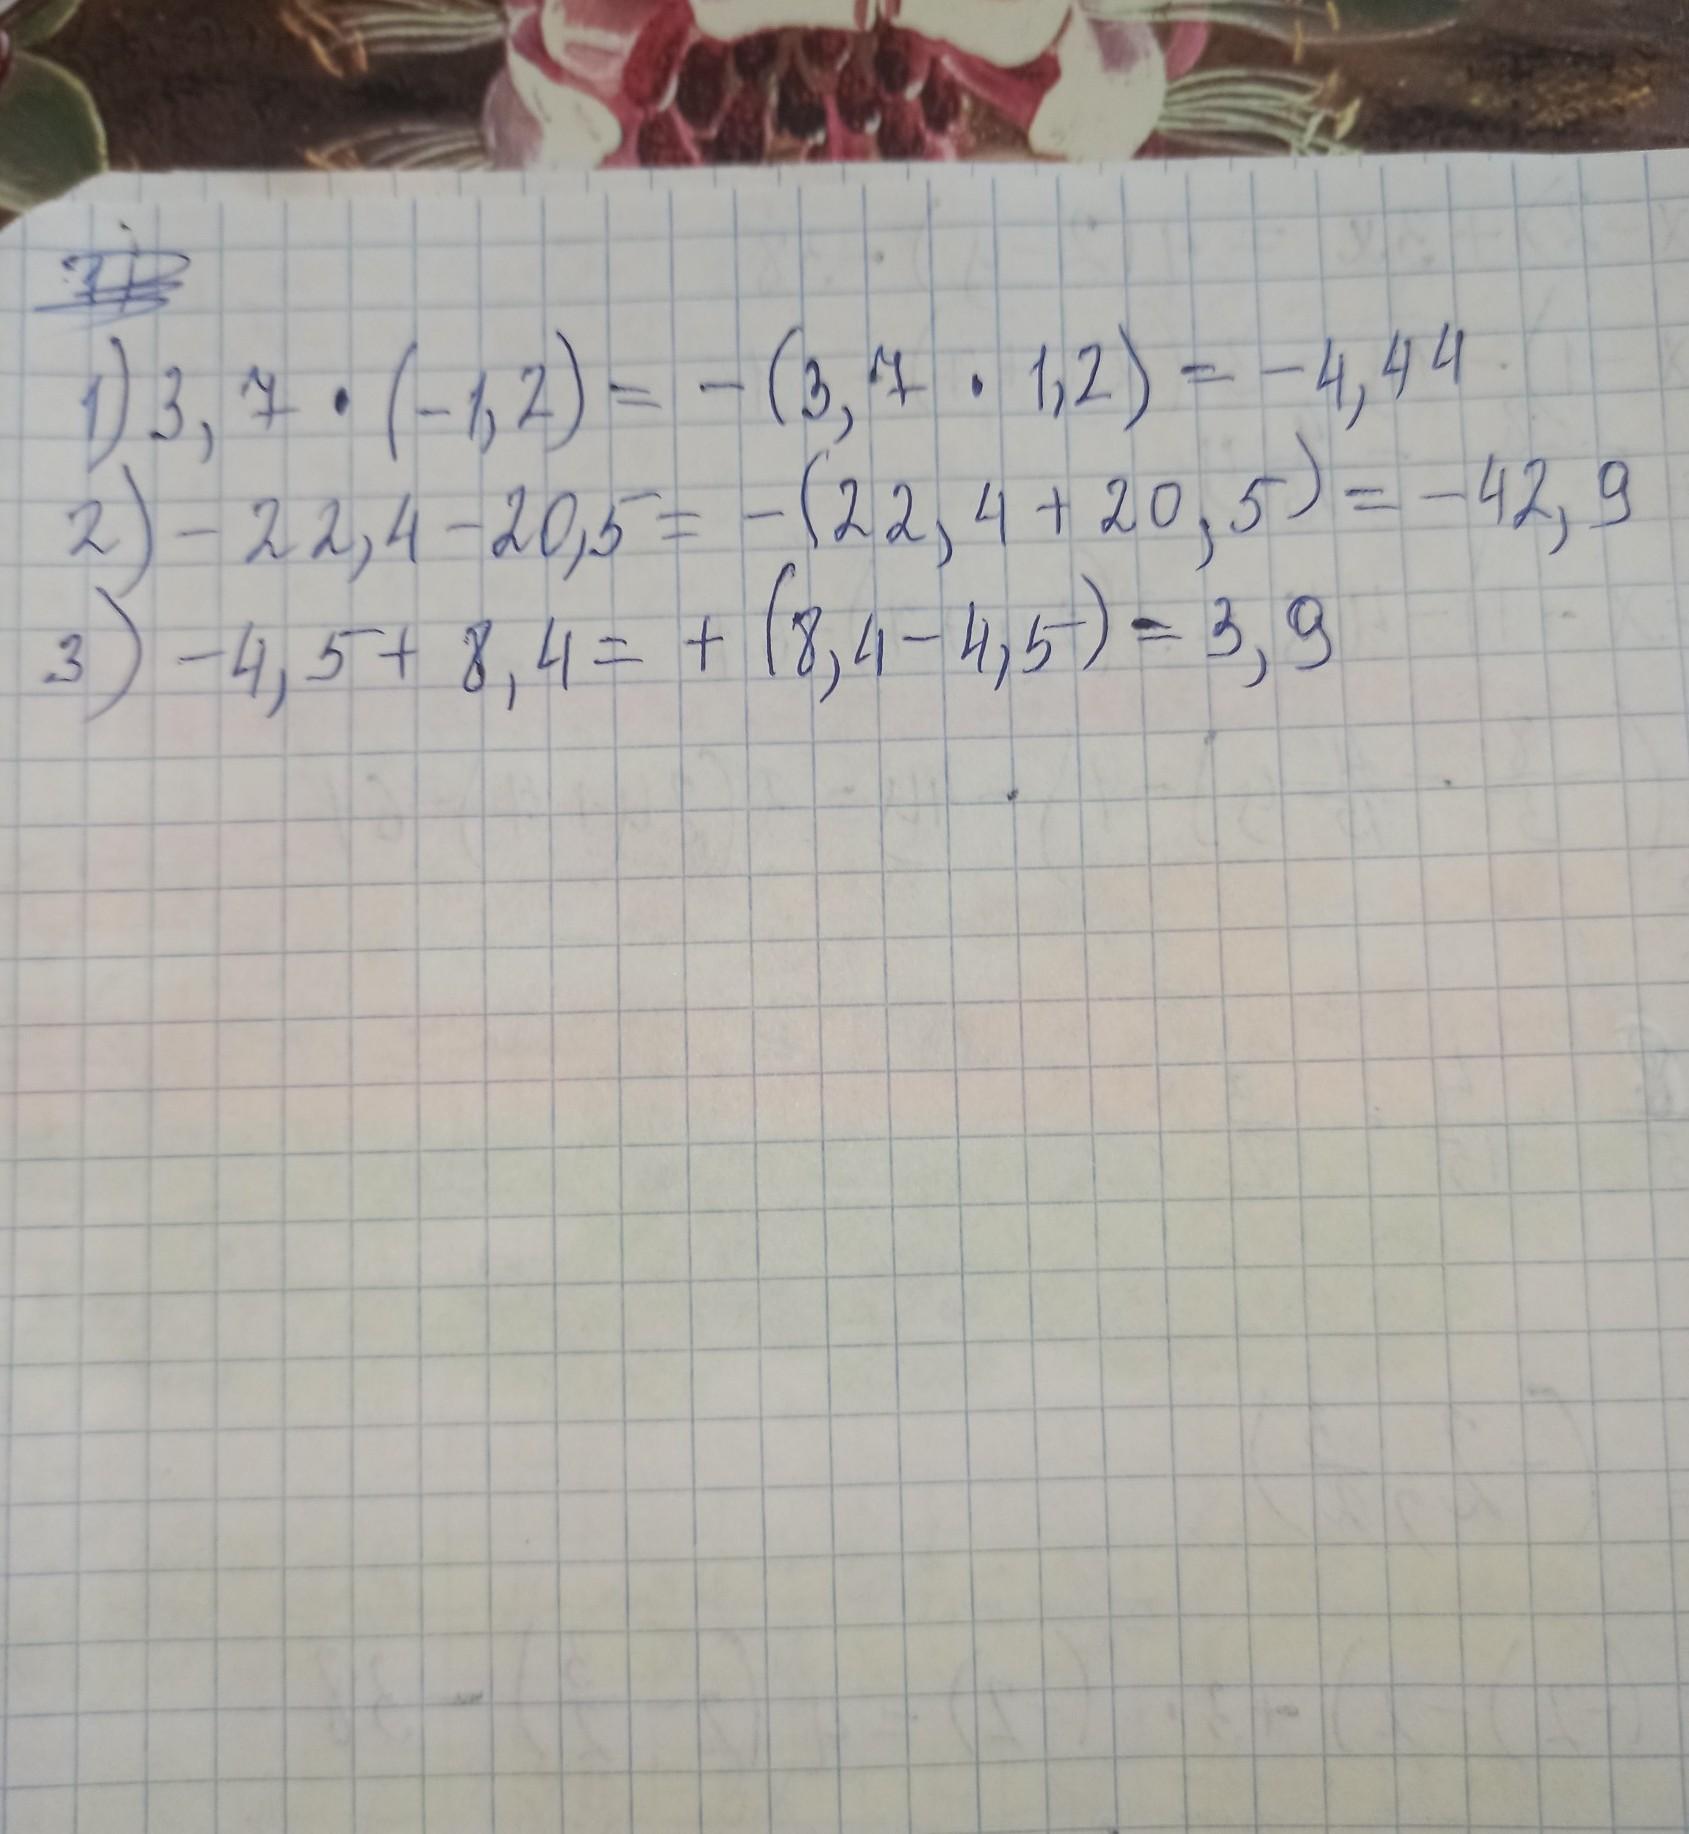 1) 3,7 · (-1,2) = -(3,7 · 1,2) = -4,44
2) -22,4-20,5 = -(22,4+20,5) = -42,9
3) -4,5+8,4 = +(8,4-4,5) = 3,9